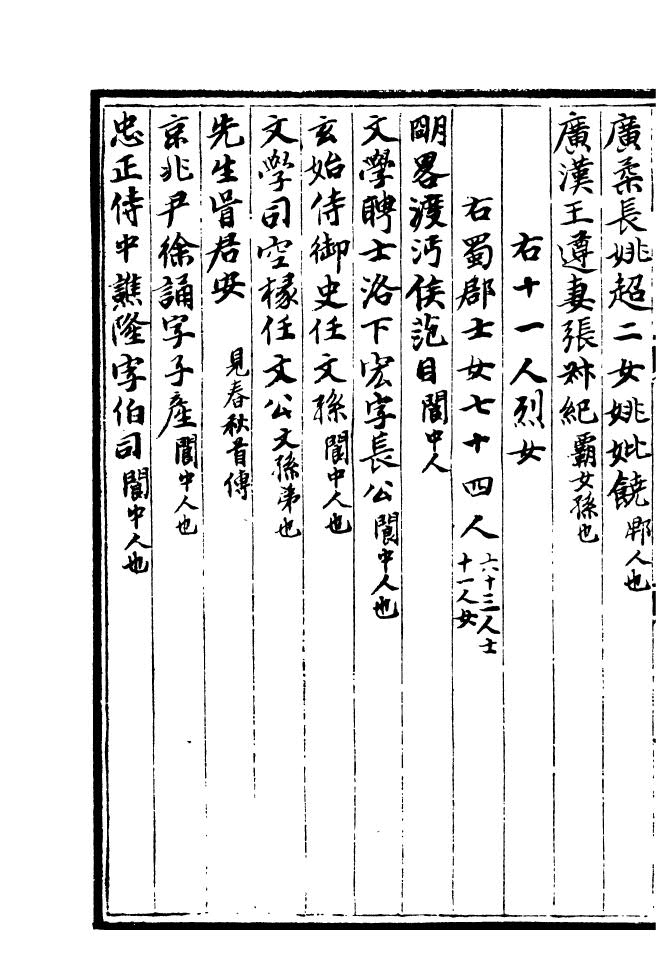 廣柔長姚超二女姚妣饒郫人也
廣漢王遵妻張叔紀霸女孫也
右十一人烈女
右蜀郡士女七十四人六十三人士十一人女
朙畧渡沔侯范目閬中人
文學聘士洛下宏字長公閬中人也
玄始侍御史任文孫閬中人也
文學司空椽任文公文孫弟也
先生胥居安 見春秋首傳
京兆尹徐誦字子產閬中人也
忠正侍中譙隆字伯司閬中人也